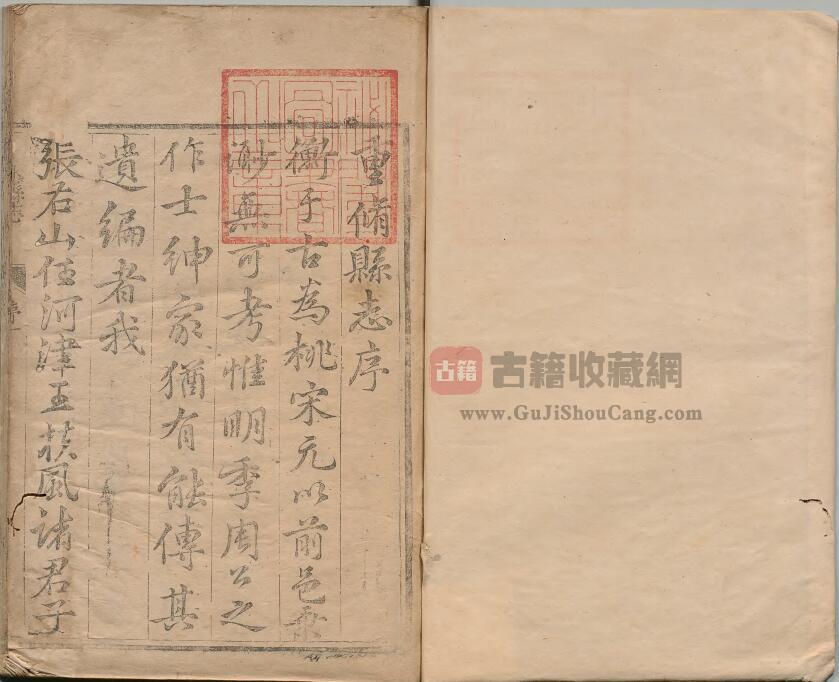 重脩縣志序
衡于古為桃宋元以前邑乘
渺無可考惟明季周公之
作士紳家猶有能傳其
遺編者我
張右山任河津王扶風諸君子
古籍
古籍收藏網
www.GuJiShouCang.com